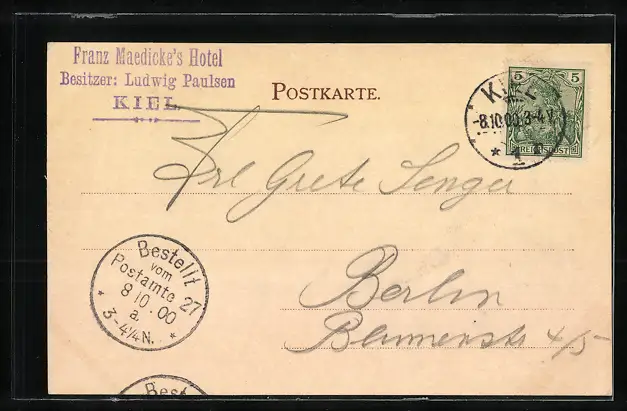 Franz Maedicke's Hotel
Besitzer: Ludwig Paulsen
KIEL
POSTKARTE.
KIEL
-8.10.00.3-4 V.
* 1 *
5 5
REICHSPOST
Frl Grete Senger
Berlin
Blumenstr 4/5
Bestellt
vom
Postamte 27
8/10.00
a.
3-4¼N.
Best